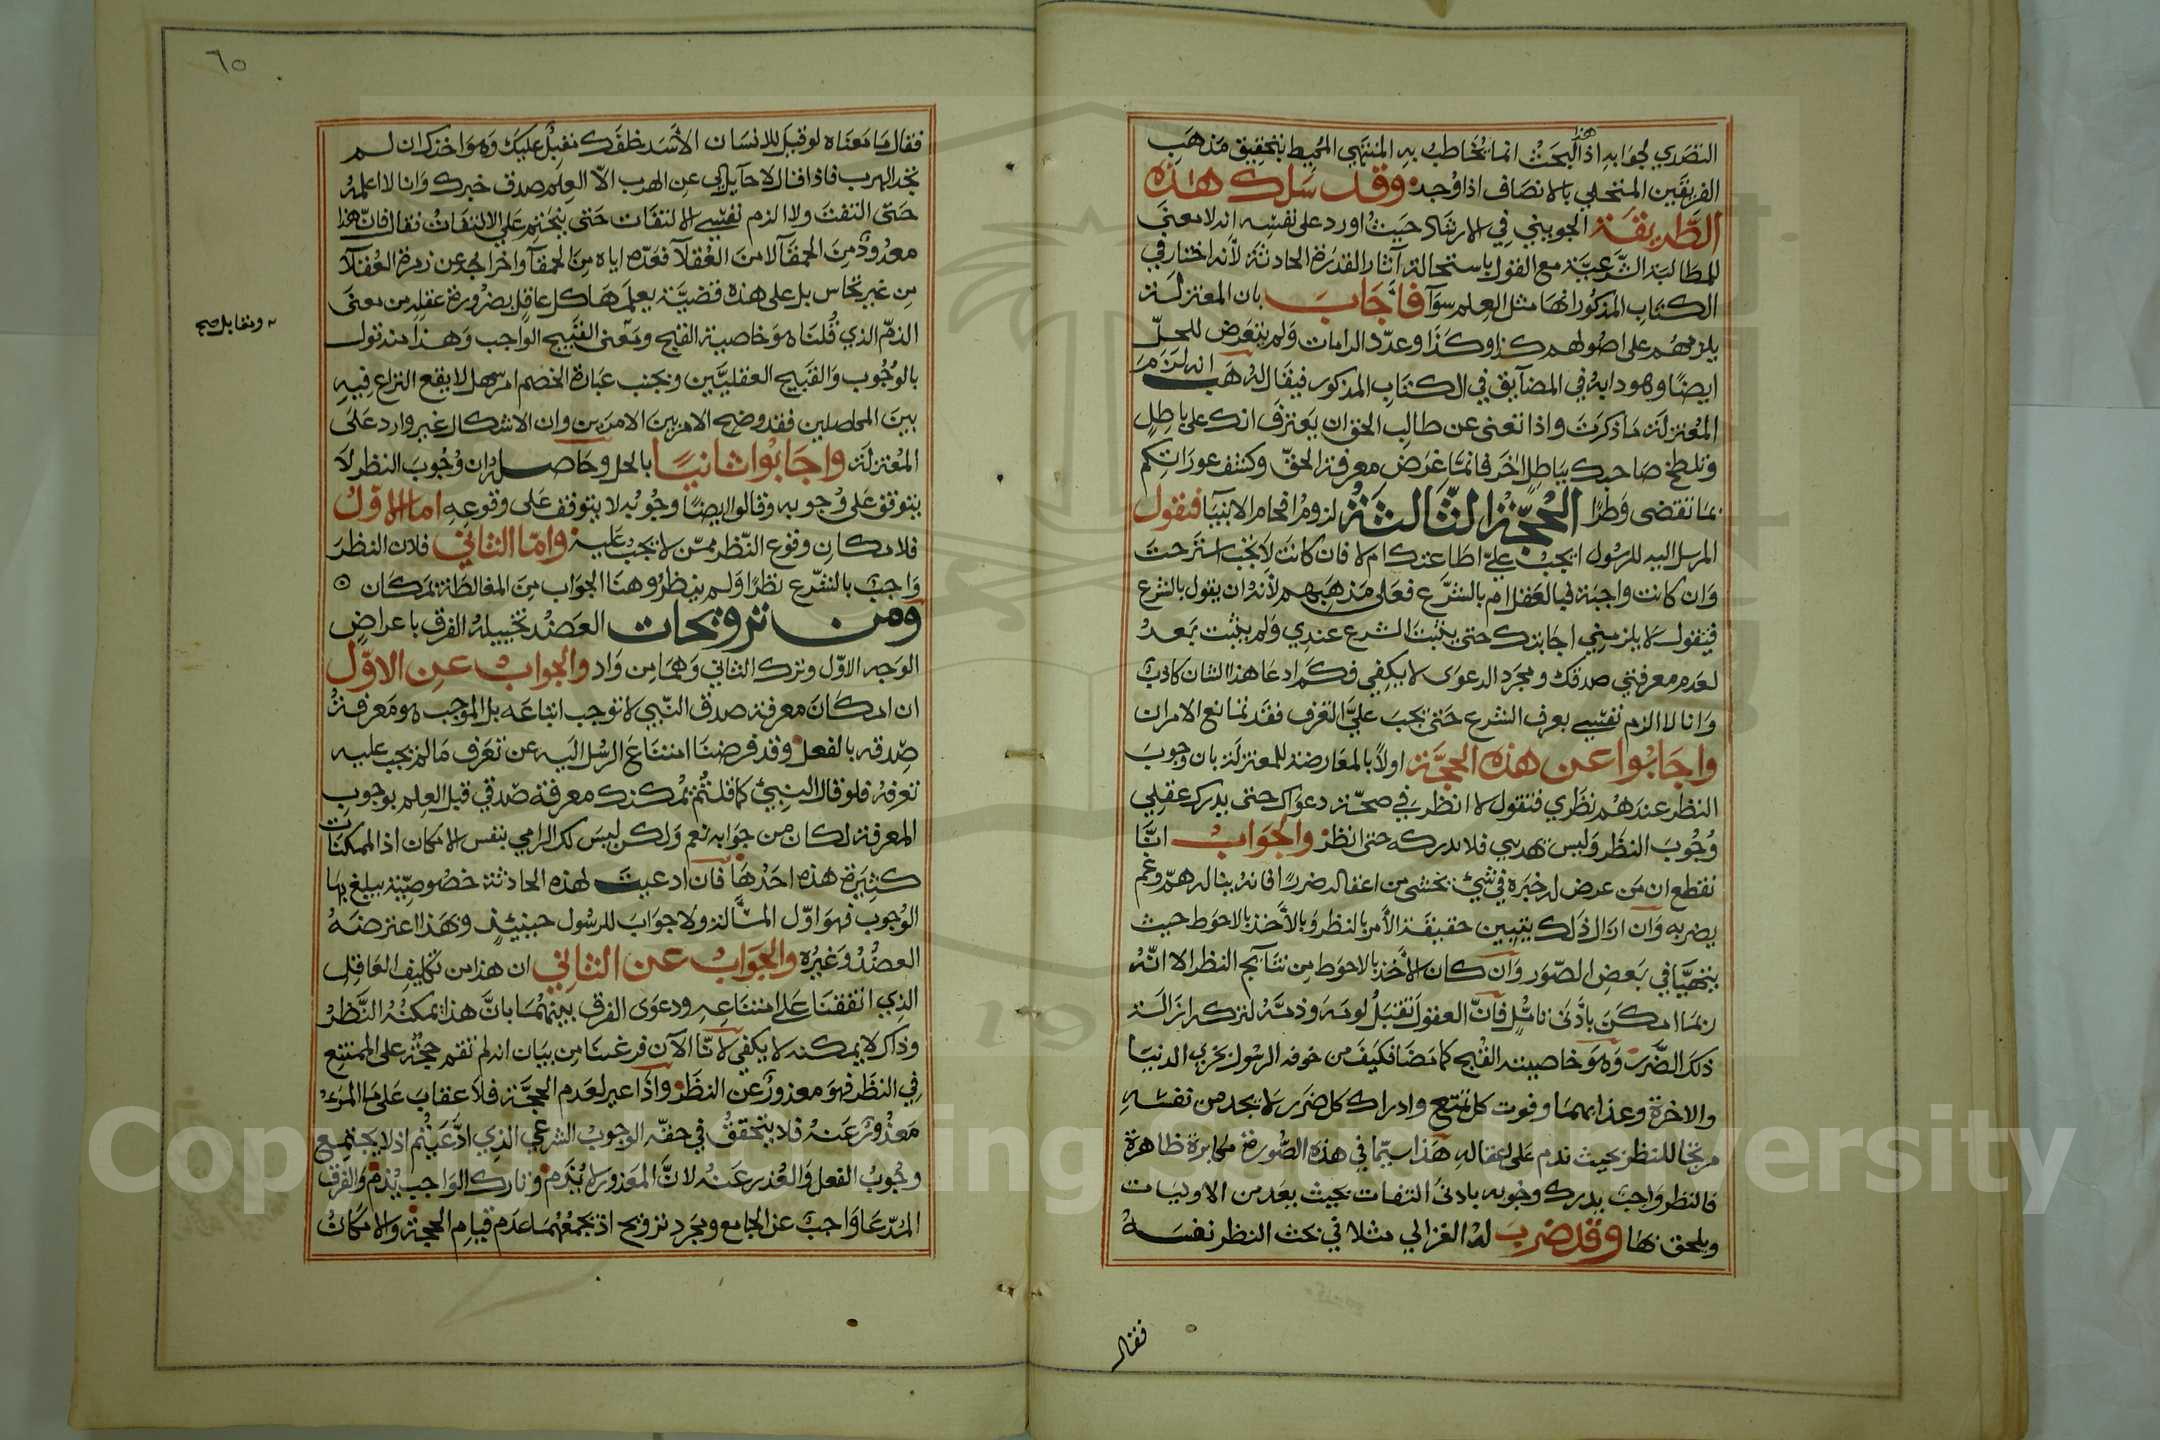 التصدي لجوابه اذ هذا البحث انما يخاطب به المنتهي المحيط بتحقيق مذهب
الفريقين المتحلي بالانصاف اذا وجد وقد سلك هذه
الطريقة الجويني في الارشاد حيث اورد على نفسه انه لا معنى
للمطالبة الشرعية مع القول باستحالة آثار القدرة الحادثة لأنه اختار في
الكتاب المذكور انها مثل العلم سوآ فاجاب بان المعتزلة
يلزمهم على اصولهم كذا وكذا وعدد الزامات ولم يتعرض للحل
ايضا وهو دابه في المضآيق في الكتاب المذكور فيقال له هب انه لزم
المعتزلة ما ذكرت واذا تغنى عن طالب الحق ان يعترف انك على باطل
وتلطخ صاحبك بباطل آخر فانما غرض معرفة الحق وكشف عوراتكم
بما تقضى وطرا الحجة الثالثة لزوم افحام الانبيآ فيقول
المرسل اليه للرسول ايجب علي اطاعتك ام لا فان كانت لا تجب استرحت
وان كانت واجبة فبالعقل ام بالشرع فعلى مذهبهم لأنه ان يقول بالشرع
فيقول لا يلزمني اجابتك حتى يثبت الشرع عندي ولم يثبت بعد
لعدم معرفتي صدقك ومجرد الدعوى لا يكفي فكم ادعا هذا الشان كاذب
وانا لا الزم نفسي بعرف الشرع حتى يجب علي التعرف فقد تمانع الامران
واجابوا عن هذه الحجة اولا بالمعارضة للمعتزلة بان وجوب
النظر عندهم نظري فتقول لا انظر في صحة دعواك حتى يدرك عقلي
وجوب النظر وليس بهديهي فلا يدركه حتى انظر والجواب انا
نقطع ان من عرض له خبره في شيء يخشى من اغفاله ضررا فانه يناله هم وغم
يضر به وان ازال ذلك يتبين حقيقة الأمر بالنظر وبالأخذ بالاحوط حيث
يتهيا في بعض الصور وان كان الأخذ بالاحوط من نتآيج النظر الا انه
ربما امكن بأدنى تأمل فان العقول تقبل لومه وذمه لتركه ازالة
ذلك الضرر وهو خاصيته القبح كما مضا فكيف من خوفه الرسول بخزي الدنيا
والاخرة وعذابهما وفوت كل تمتع وادراك كل ضرر لا يجد من نفسه
مرتجا للنظر بحيث ندم على اغفاله هذا سيما في هذه الصورة مكابرة ظاهرة
فالنظر واجب يدرك وجوبه بادنى التفات بحيث يعد من الاوليات
ويلحق بها وقد ضرب له الغزالي مثلا في بحث النظر نفسه
فقال
٦٥
فقال ما معناه لو قيل للانسان الأسد خلفك مقبل عليك وهو اخذك ان لم
تجد الهرب فاذا قال لا حآيل لي عن الهرب الا العلم صدق خبرك وانا لا اعلمه
حتى التفت ولا الزم نفسي الالتفات حتى يتحتم علي الالتفات فقال فان هذا
معدود من الحمقآ لا من العقلآ فعده اياه من الحمقآ واخراجه عن زمرة العقلآ
من غير تحاس بل على هذه قضية يعلمها كل عاقل بضرورة عقله من معنى
الذم الذي قلناه هو خاصية القبح ومعنى القبيح الواجب وهذا منه قول
بالوجوب والقبيح العقليين وتجنب عبارة الخصم امر سهل لا يقع النزاع فيه
بين المحصلين فقد وضح الامر بين الامرين وان الاشكال غير وارد على
المعتزلة واجابوا ثانيا بالحل وحاصله ان وجوب النظر لا
يتوقف على وجوبه وقالوا ايضا وجوبه لا يتوقف على وقوعه اما الاول
فلامكان وقوع النظر ممن لا يجب عليه واما الثاني فلان النظر
واجب بالشرع نظر او لم ينظر وهنا الجواب من المغالطة بمكان
ومن تزويجات العضد تخييله الفرق باعراض
الوجه الاول وترك الثاني وهما من واد والجواب عن الاول
ان امكان معرفة صدق النبي لا توجب اتباعه بل الموجب هو معرفة
صدقه بالفعل وقد فرضنا امتناع الرسل اليه عن تعرف ما لم يجب عليه
تعرفه فلو قال النبي كما قلتم تمكنك معرفة صدقي قبل العلم بوجوب
المعرفة لكان من جوابه نعم ولكن ليس لك الزامي بنفس الامكان اذ الممكنات
كثيرة هذه احدها فان ادعيت لهذه الحادثة خصوصية يبلغ بها
الوجوب فهو اول المسألة ولا جواب للرسول حينئذ وبهذا اعترضه
العضد وغيره والجواب عن الثاني ان هذا من تكليف الغافل
الذي اتفقنا على امتناعه ودعوى الفرق بينهما بان هذا يمكنه النظر
وذاك لا يمكنه لا يكفي لانا الآن فرغنا من بيان انه لم تقم حجة على الممتنع
في النظر فهو معذور عن النظر واذا عير لعدم الحجة فلا عقاب على ما المرء
معذور عنه فلا يتحقق في حقه الوجوب الشرعي الذي ادعيتم اذ لا يجتمع
وجوب الفعل والعذر عنه لان المعذور لا يذم وتارك الواجب يذم والفرق
المدعا واجب عن الجامع ومجرد تزويج اذ يجمعهما عدم قيام الحجة والامكان
ونقابل صح
Copyright © King Saud University